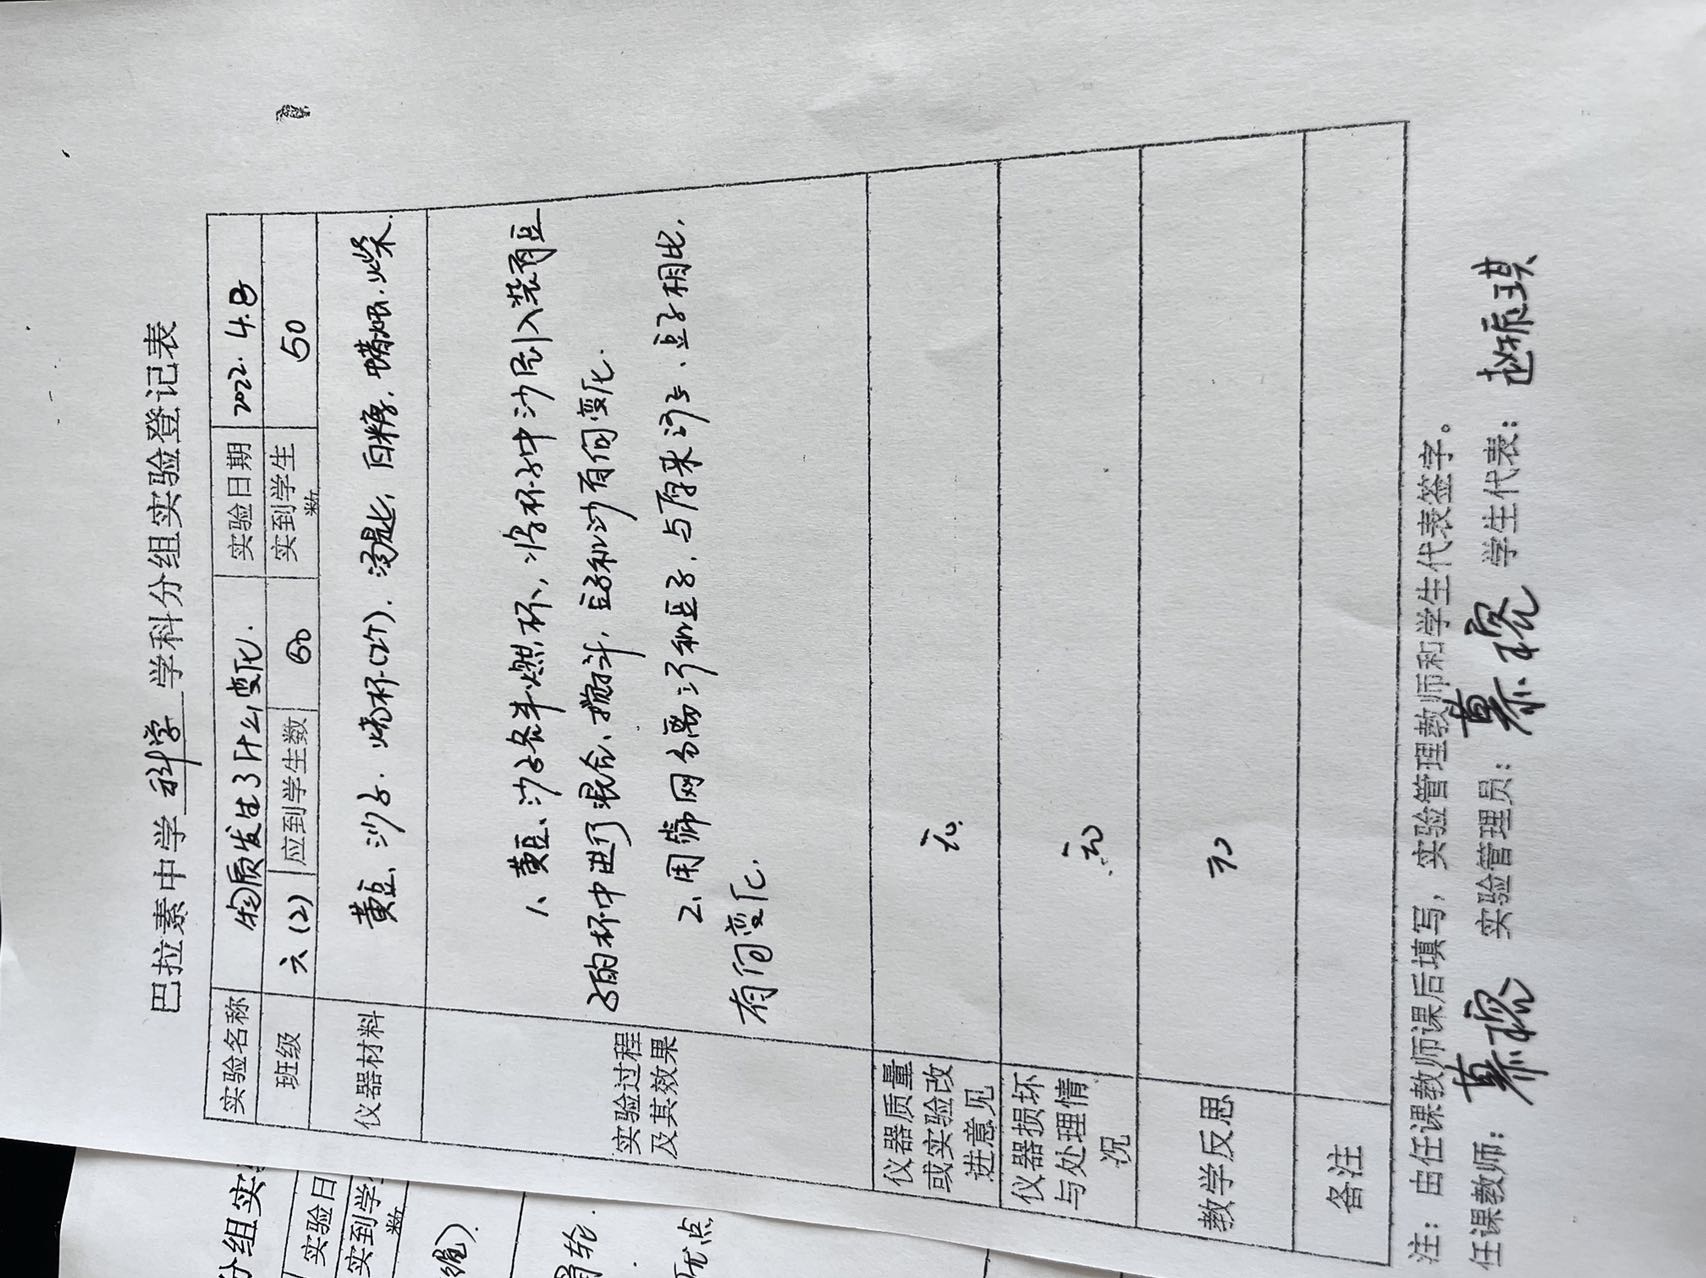 巴拉素中学 科学 学科分组实验登记表
实验名称 物质发生了什么变化. 实验日期 2022.4.8
班级 六(2) 应到学生数 60 实到学生数 50
仪器材料 黄豆、沙子、烧杯(2个)、汤匙、白糖、蜡烛、火柴.
实验过程及其效果
1、黄豆、沙子各半燃杯,将杯子中沙倒入装有豆
子的杯中进行混合、搅斗,豆子和沙有何变化.
2、用筛网分离沙和豆子,与原来沙子、豆子相比,
有何变化.
仪器质量或实验改进意见 无.
仪器损坏与处理情况 无
教学反思 无
备注
注:由任课教师课后填写,实验管理教师和学生代表签字。
任课教师: 实验管理员: 学生代表:
分组实
实验日
实到学生
数
优点